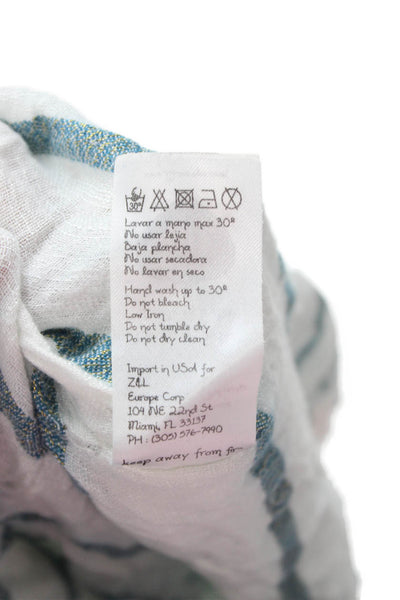 30°
Lavar a mano max 30º
No usar lejia
Baja plancha
No usar secadora
No lavar en seco
Hand wash up to 30º
Do not bleach
Low Iron
Do not tumble dry
Do not dry clean
Import in USA for
Z&L
Europe Corp
104 NE 22nd St
Miami, FL 33137
PH : (305) 576-7990
keep away from fire